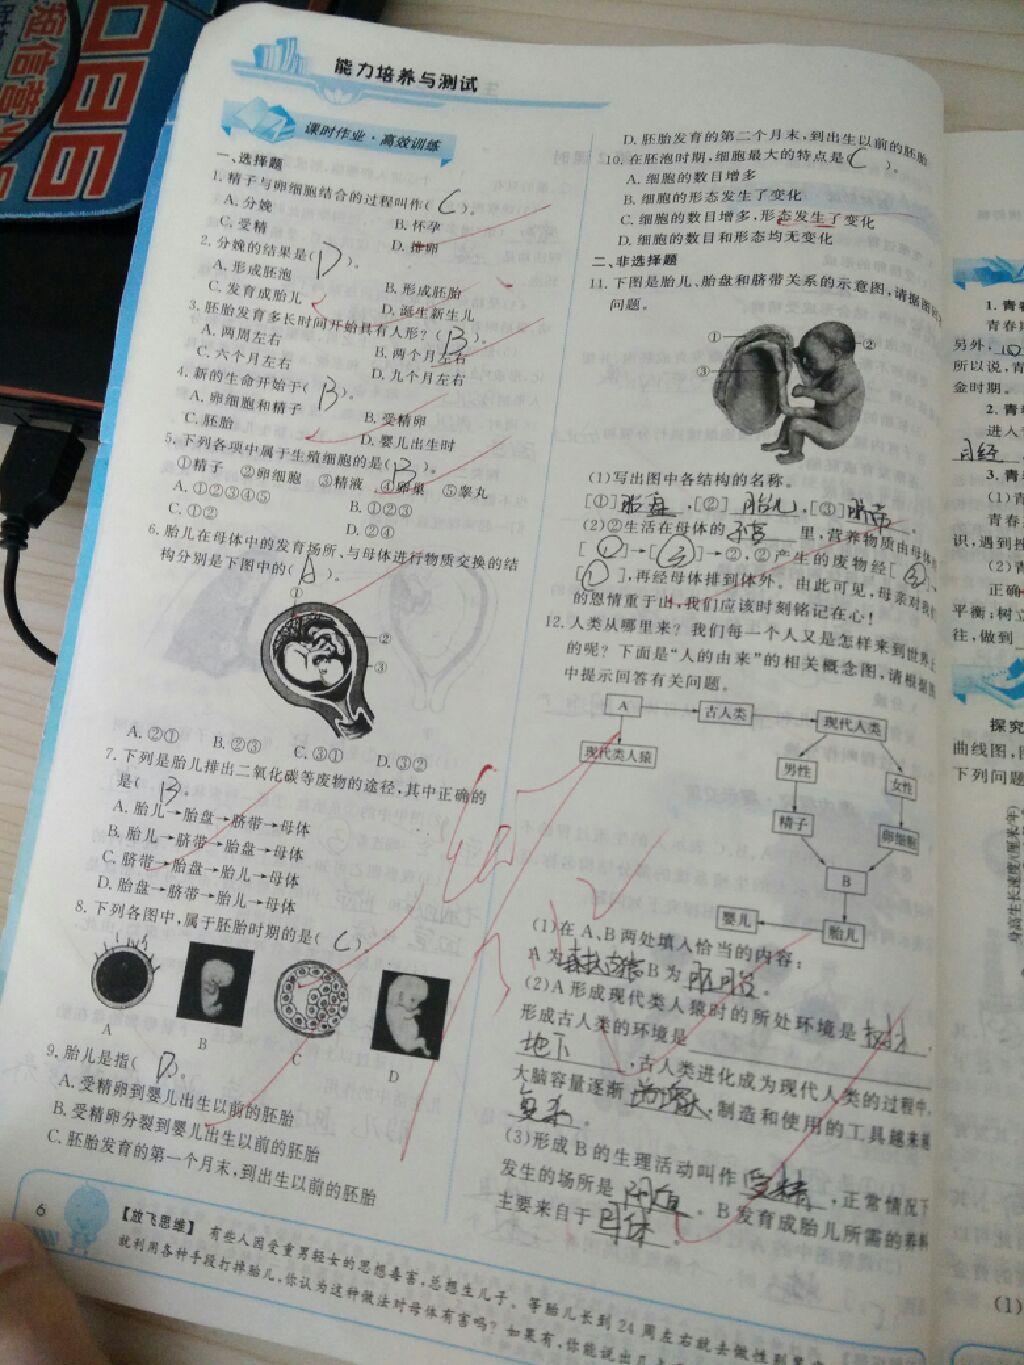 能力培养与测试
课时作业·高效训练
一、选择题
1. 精子与卵细胞结合的过程叫作( C )。
A. 分娩 B. 怀孕
C. 受精 D. 排卵
2. 分娩的结果是( D )。
A. 形成胚泡 B. 形成胚胎
C. 发育成胎儿 D. 诞生新生儿
3. 胚胎发育多长时间开始具有人形?( B )。
A. 两周左右 B. 两个月左右
C. 六个月左右 D. 九个月左右
4. 新的生命开始于( B )。
A. 卵细胞和精子 B. 受精卵
C. 胚胎 D. 婴儿出生时
5. 下列各项中属于生殖细胞的是( B )。
①精子 ②卵细胞 ③精液 ④卵巢 ⑤睾丸
A. ①②③④⑤ B. ①②③
C. ①② D. ②④
6. 胎儿在母体中的发育场所、与母体进行物质交换的结
构分别是下图中的( A )。
①
②
③
A. ②① B. ②③ C. ③① D. ③②
7. 下列是胎儿排出二氧化碳等废物的途径,其中正确的
是( B )。
A. 胎儿→胎盘→脐带→母体
B. 胎儿→脐带→胎盘→母体
C. 脐带→胎盘→胎儿→母体
D. 胎盘→脐带→胎儿→母体
8. 下列各图中,属于胚胎时期的是( C )。
A B C D
9. 胎儿是指( D )。
A. 受精卵到婴儿出生以前的胚胎
B. 受精卵分裂到婴儿出生以前的胚胎
C. 胚胎发育的第一个月末,到出生以前的胚胎
D. 胚胎发育的第二个月末,到出生以前的胚胎
10. 在胚泡时期,细胞最大的特点是( C )。
A. 细胞的数目增多
B. 细胞的形态发生了变化
C. 细胞的数目增多,形态发生了变化
D. 细胞的数目和形态均无变化
二、非选择题
11. 下图是胎儿、胎盘和脐带关系的示意图,请据图回
问题。
①
②
③
(1)写出图中各结构的名称。
[①]胎盘,[②]胎儿,[③]脐带。
(2)②生活在母体的子宫里,营养物质由母体
[①]→[③]→②,②产生的废物经[③]、
[①],再经母体排到体外。由此可见,母亲对我们
的恩情重于山,我们应该时刻铭记在心!
12. 人类从哪里来?我们每一个人又是怎样来到世界上
的呢?下面是“人的由来”的相关概念图,请根据图
中提示回答有关问题。
A 古人类 现代人类
现代类人猿
男性 女性
精子 卵细胞
B
婴儿 胎儿
(1)在A、B两处填入恰当的内容:
A为森林古猿B为胚胎。
(2)A形成现代类人猿时的所处环境是树林,
形成古人类的环境是
地下,古人类进化成为现代人类的过程中,
大脑容量逐渐,制造和使用的工具越来越
复杂。
(3)形成B的生理活动叫作受精,正常情况下
发生的场所是。B发育成胎儿所需的养料
主要来自于母体。
6
【放飞思维】 有些人因受重男轻女的思想毒害,总想生儿子。等胎儿长到24周左右就去做性别
就利用各种手段打掉胎儿,你认为这种做法对母体有害吗?如果有,你能说出几
1. 青
青春期
另外,
所以说,青
金时期。
2. 青
进入
月经
3. 青
(1)青
青春
识,遇到
(2)青
正确
平衡;树立
注,做到
探究
曲线图,
下列问题
身高生长速度/(厘米/年)
(1)
短信营业